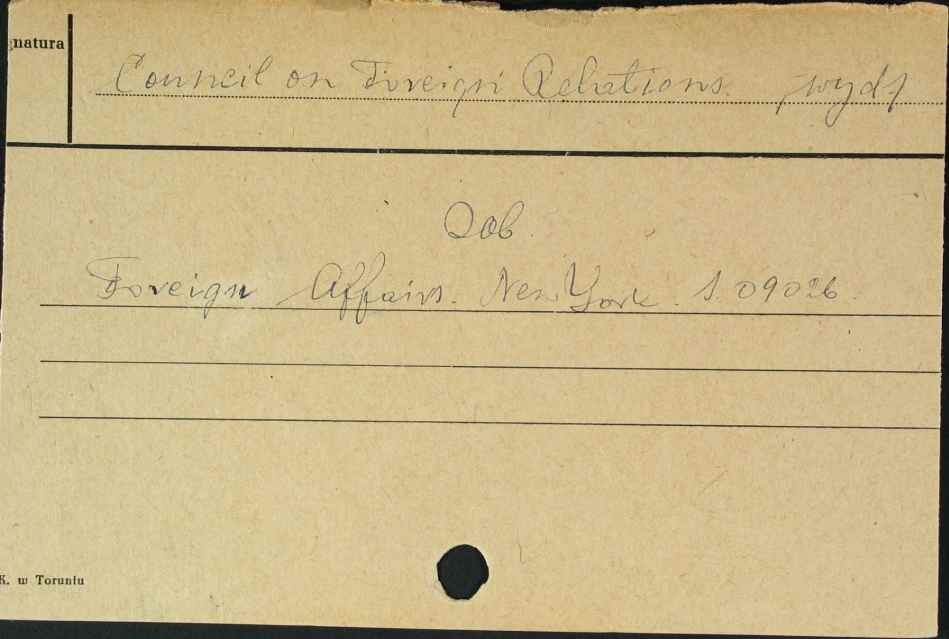 gnatura
Council on Foreign Relations. /wyd/
Zob.
Foreign Affairs. New York. S. 09026.
K. w Toruniu